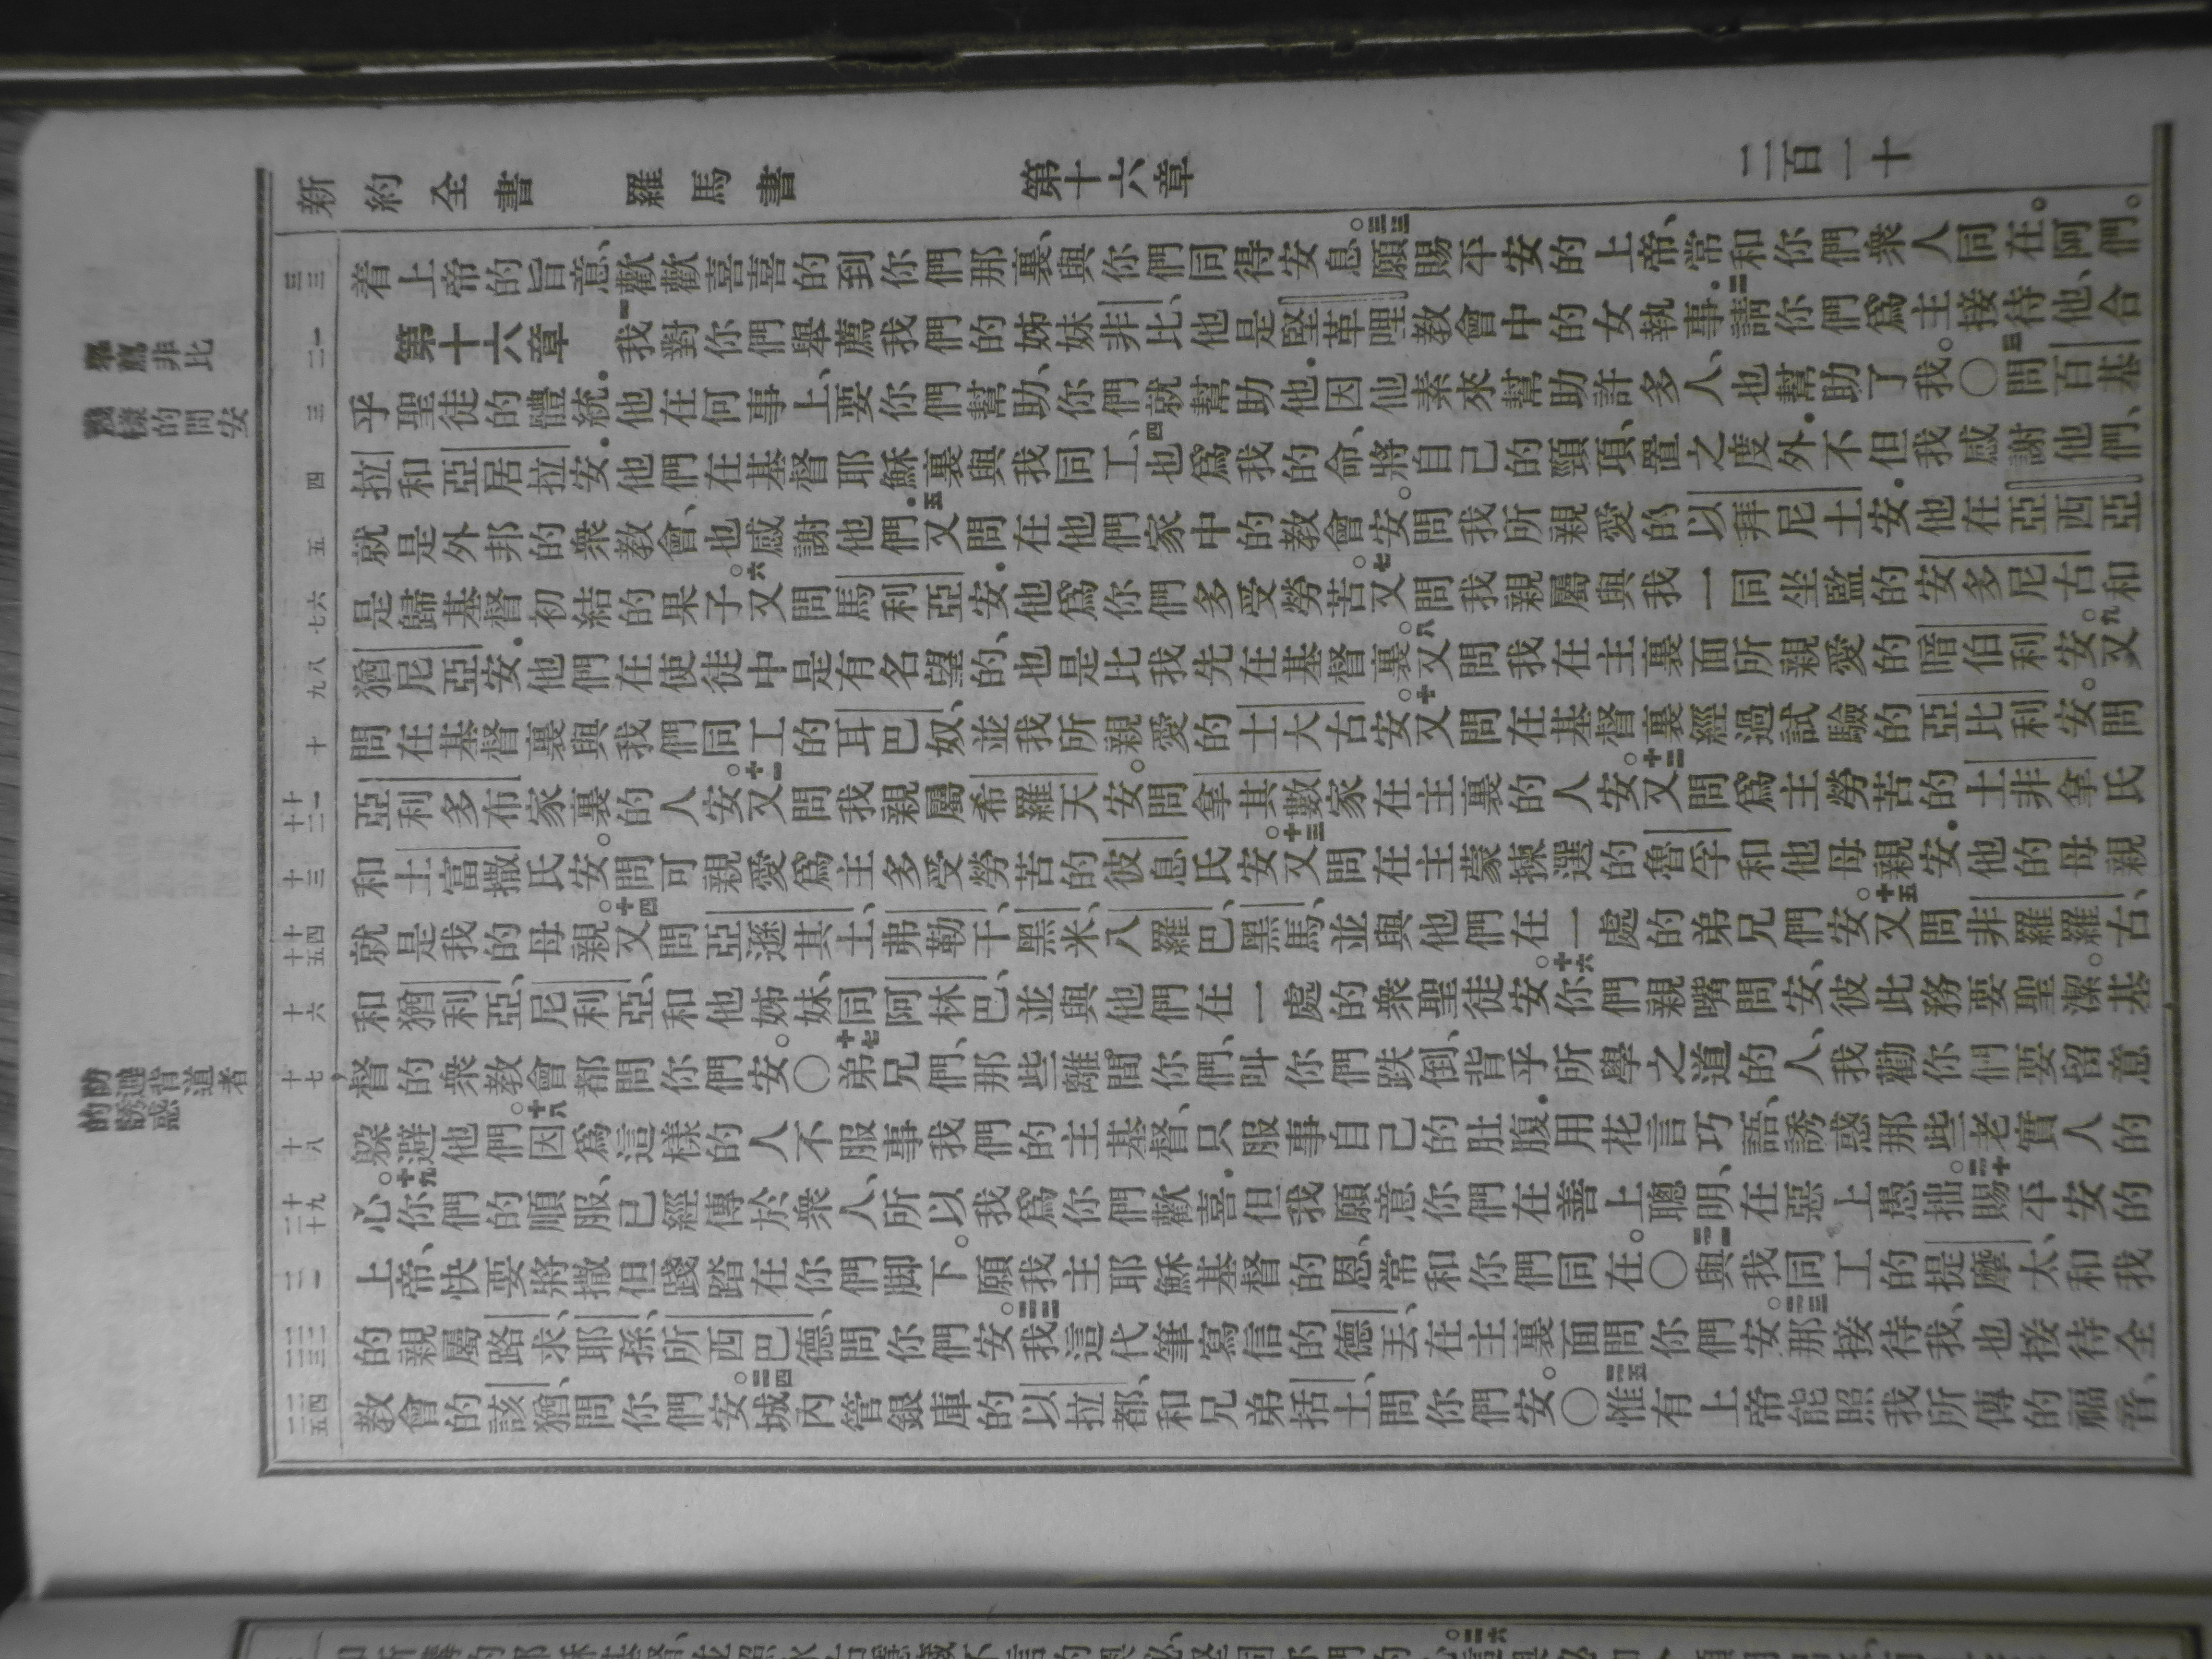 新約全書 羅馬書 第十六章 二百一十
三三 着上帝的旨意、歡歡喜喜的到你們那裏、與你們同得安息。三三願賜平安的上帝、常和你們衆人同在。阿們。
一二 第十六章 一我對你們舉薦我們的姊妹非比、他是堅革哩教會中的女執事．二請你們爲主接待他、合
三 乎聖徒的體統．他在何事上、要你們幫助、你們就幫助他．因他素來幫助許多人、也幫助了我。〇三問百基
四 拉和亞居拉安．他們在基督耶穌裏與我同工、四也爲我的命、將自己的頸項、置之度外．不但我感謝他們、
五 就是外邦的衆教會、也感謝他們．五又問在他們家中的教會安。問我所親愛的以拜尼土安．他在亞西亞
六七 是歸基督初結的果子。六又問馬利亞安．他爲你們多受勞苦。七又問我親屬與我一同坐監的安多尼古和
八九 猶尼亞安．他們在使徒中是有名望的、也是比我先在基督裏。八又問我在主裏面所親愛的暗伯利安。九又
十 問在基督裏與我們同工的耳巴奴、並我所親愛的士大古安。十又問在基督裏經過試驗的亞比利安。問
十一十二 亞利多布家裏的人安。十一又問我親屬希羅天安。問拿其數家在主裏的人安。十二又問爲主勞苦的土非拿氏
十三 和土富撒氏安。問可親愛爲主多受勞苦的彼息氏安。十三又問在主蒙揀選的魯孚和他母親安．他的母親
十四十五 就是我的母親。十四又問亞遜其土、弗勒干、黑米、八羅巴、黑馬、並與他們在一處的弟兄們安。十五又問非羅羅古、
十六 和猶利亞、尼利亞、和他姊妹、同阿林巴、並與他們在一處的衆聖徒安。十六你們親嘴問安、彼此務要聖潔。基
十七 督的衆教會都問你們安。〇十七弟兄們、那些離間你們、叫你們跌倒、背乎所學之道的人、我勸你們要留意
十八 躱避他們。十八因爲這樣的人不服事我們的主基督、只服事自己的肚腹．用花言巧語、誘惑那些老實人的
十九二十 心。十九你們的順服、已經傳於衆人、所以我爲你們歡喜．但我願意你們在善上聰明、在惡上愚拙。二十賜平安的
二一 上帝、快要將撒但踐踏在你們脚下。願我主耶穌基督的恩、常和你們同在。〇二一與我同工的提摩太、和我
二二二三 的親屬路求、耶孫、所西巴德、問你們安。二二我這代筆寫信的德丟、在主裏面問你們安。二三那接待我、也接待全
二四二五 教會的該猶、問你們安。二四城內管銀庫的以拉都、和兄弟括土、問你們安。〇二五惟有上帝能照我所傳的福音、
舉薦非比
幾樣的問安
防避背道者的誘惑